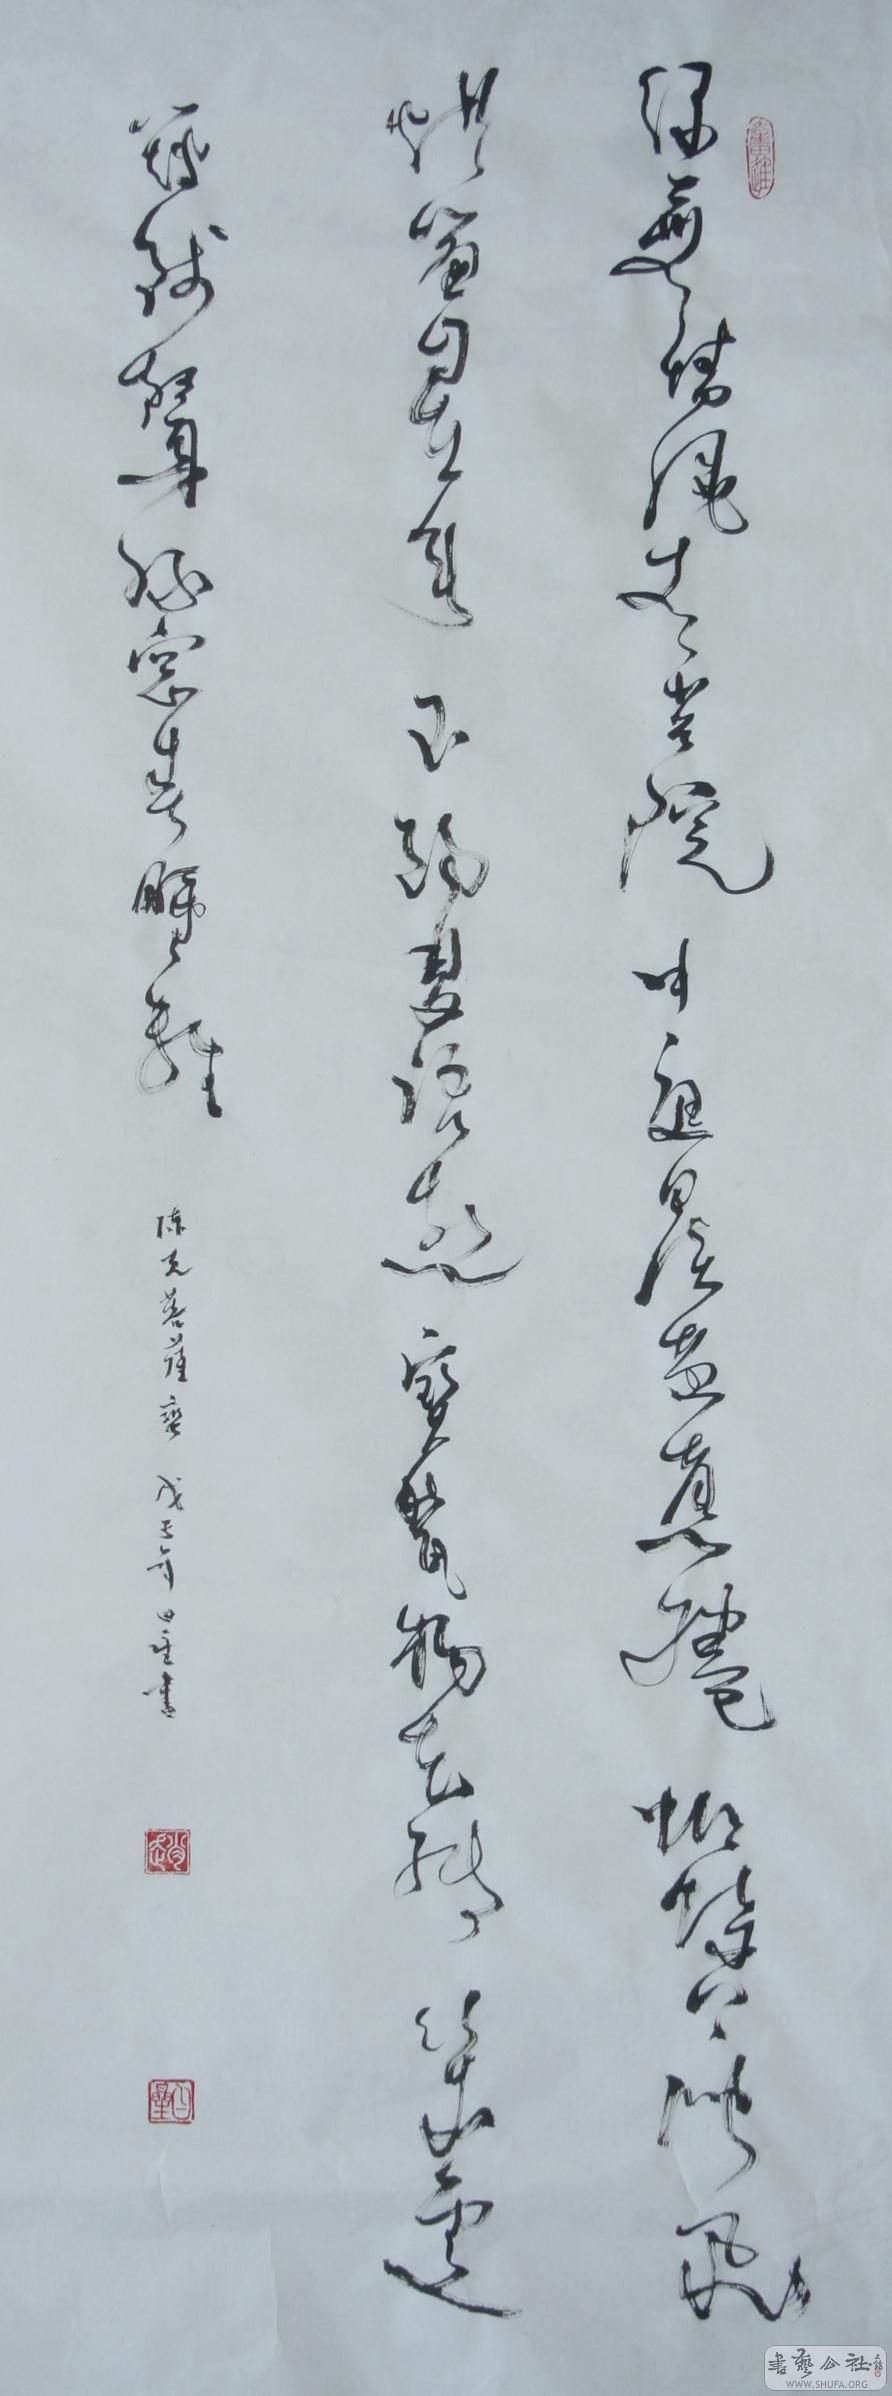 綠蕪牆繞青苔院 中庭日淡芭蕉捲 蝴蝶上階飛
烘簾自在垂 玉鈎雙語燕 寶甃楊花轉 幾處
簸錢聲 綠窗春睡輕
陳克菩薩蠻 戊子年 日星書
書藝公社
WWW.SHUFA.ORG